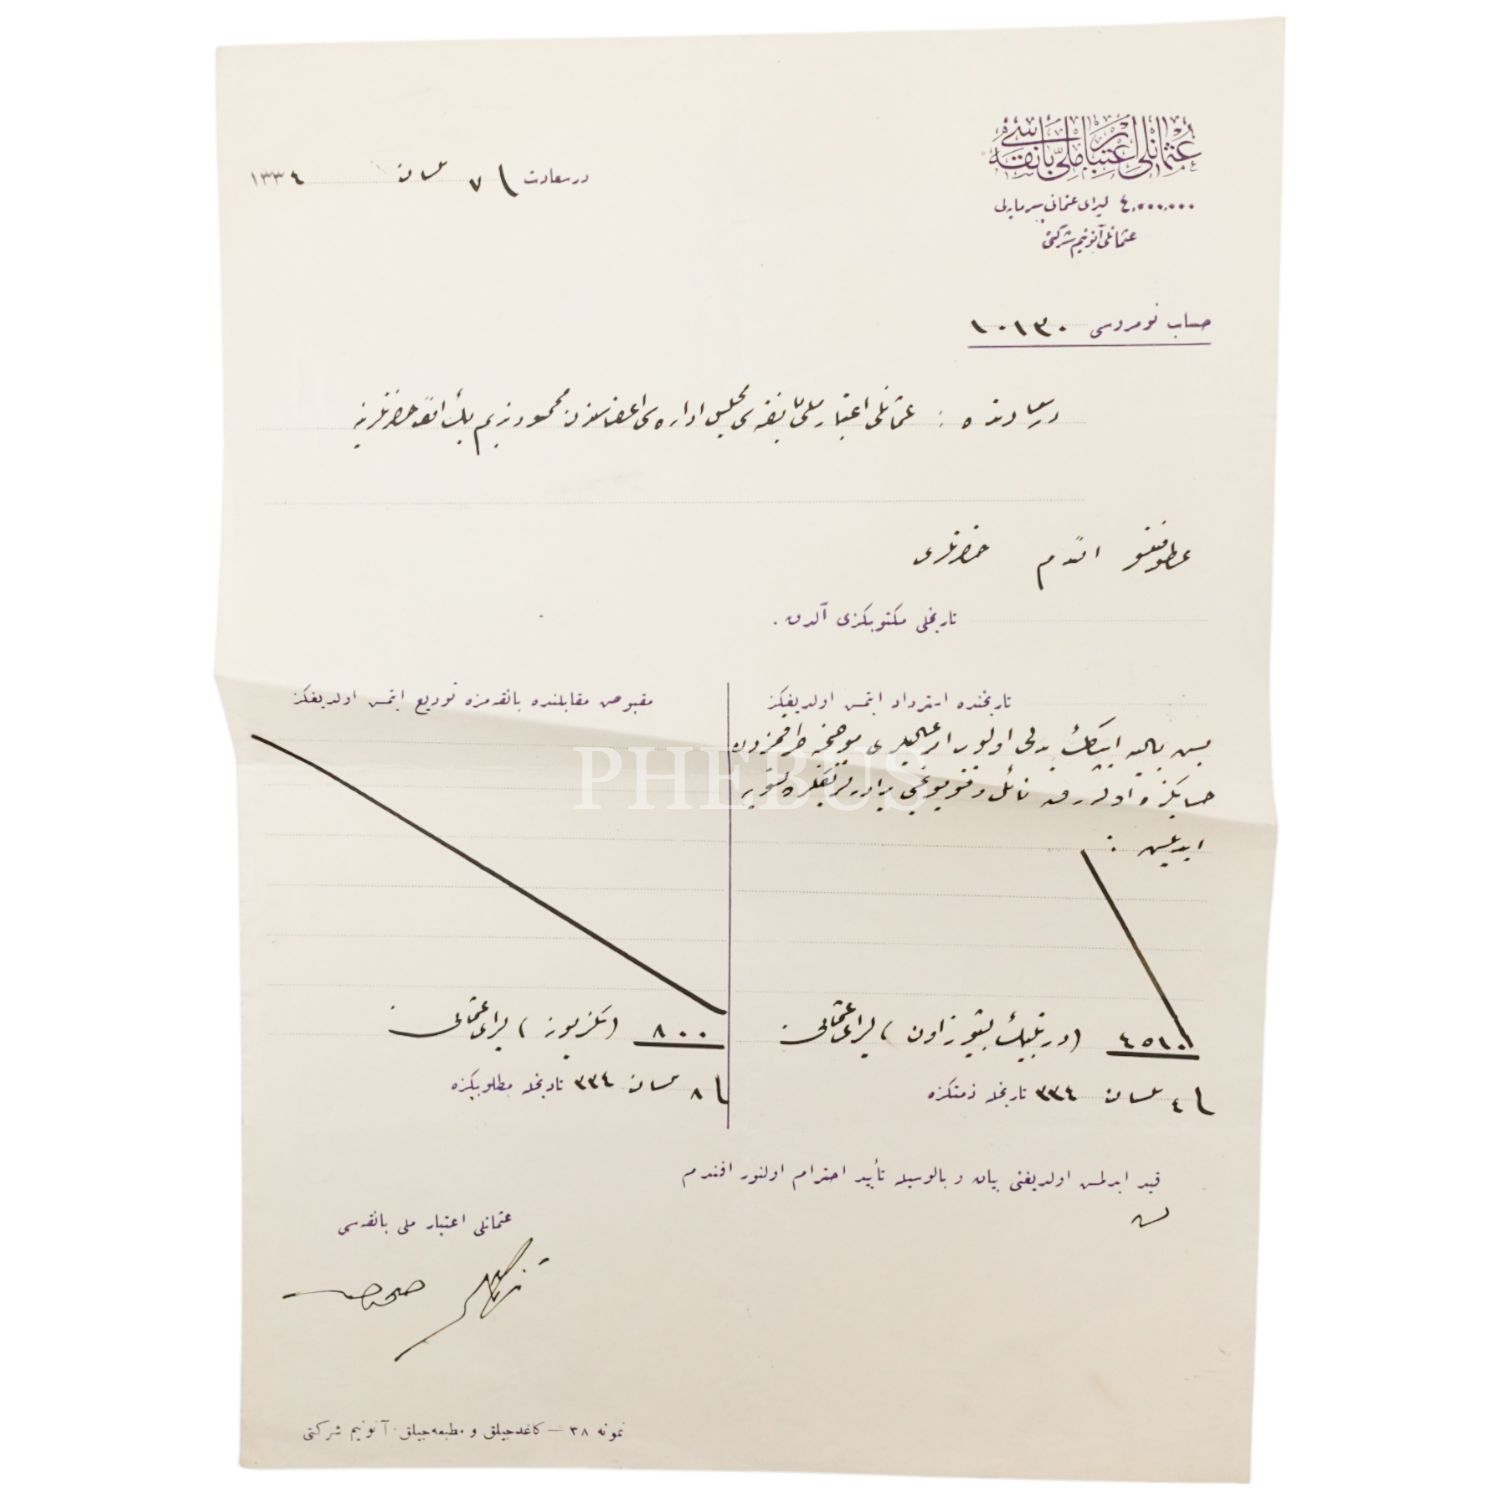 عثمانلی اعتبار ملی بانقه‌سی
٤,٠٠٠,٠٠٠ لیرای عثمانی سرمایه‌لی
عثمانلی آنونیم شرکتی
درسعادت ٧ نیسان ١٣٣٤
حساب نومروسی ١٠١٣٠
درسعادتده : عثمانلی اعتبار ملی بانقه‌سی مجلس اداره‌سی اعضاسندن محمود ندیم بك افندی حضرتلرینه
عطوفتلو افندم حضرتلری
تاریخلی مکتوبکزی آلدق .
تاریخنده استرداد ایتمش اولدیغکز
بدلی اولوب امر عالیلری موجبنجه طرافمزدن
حسابکزه اوله‌رق
ایدلمش :
٤٥١٠ (درتبیك بشیوز اون) لیرای عثمانی
٤ نیسان ٣٣٤ تاریخله ذمتکزه
مقبوض مقابلنده بانقه‌مزه تودیع ایتمش اولدیغکز
٨٠٠ (سکزیوز) لیرای عثمانی
٨ نیسان ٣٣٤ تاریخله مطلوبکزه
PHEBUS
قید ایدلمش اولدیغنی بیان و بالوسیله تأیید احترام اولنور افندم
عثمانلی اعتبار ملی بانقه‌سی
نمونه ٣٨ — کاغدجیلق و مطبعه‌جیلق آنونیم شرکتی